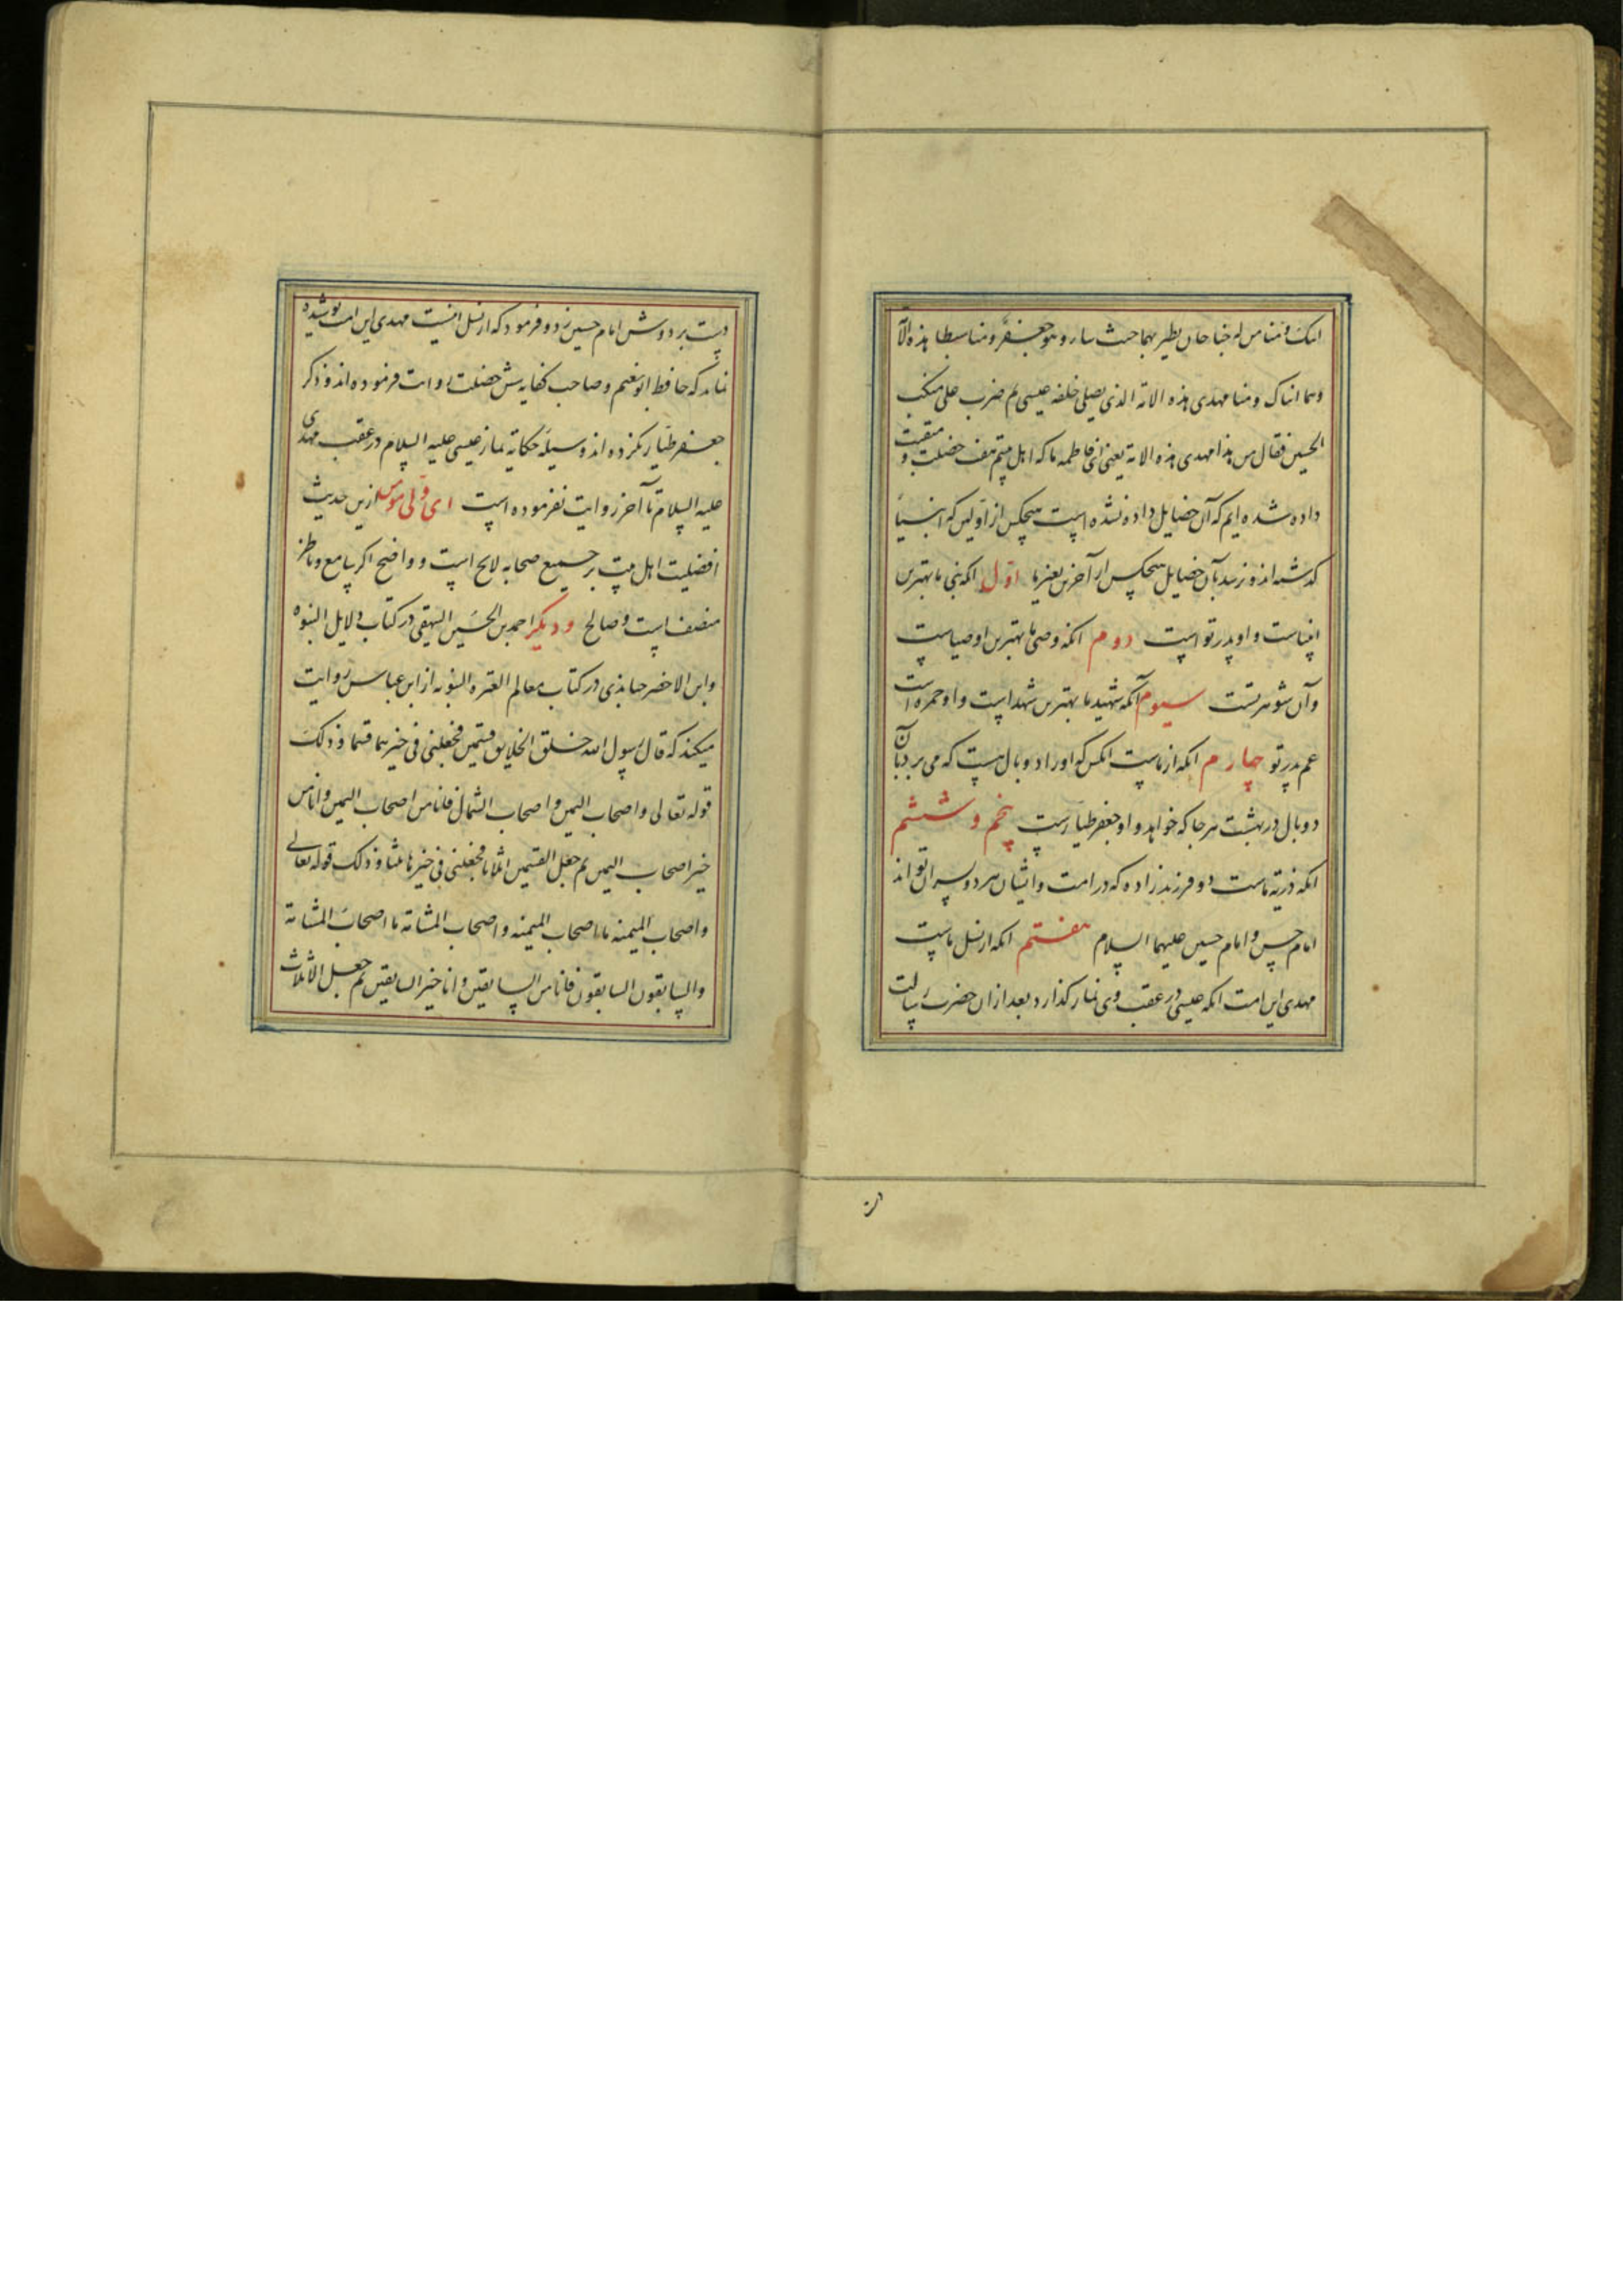 ابیک و منا من له جناحان یطیر بهما حیث یشاء و هو جعفر و منا سبطا هذه الامّ
و هما ابناک و منا مهدی هذه الامة الذی یصلی خلفه عیسی ثم ضرب علی منکب
الحسین فقال من هذا مهدی هذه الامة یعنی ای فاطمه ما که اهل بیتیم هفت خصلت و منقبت
داده شده‌ایم که آن خصایل داده نشده است هیچکس از اولین که انبیا
گذشته‌اند و نرسد بآن خصایل هیچکس از آخرین بغیر ما اوّل آنکه نبی ما بهترین
انبیاست و او پدر تو است دوم آنکه وصی ما بهترین اوصیاست
و آن شوهر تست سیوم آنکه شهید ما بهترین شهداست و او حمزه است
عم پدر تو چهارم آنکه از ماست آنکس که او را دو بال هست که می‌پرد بآن
دو بال در بهشت هر جا که خواهد و او جعفر طیارست پنجم و ششم
آنکه ذریه ماست دو فرزندزاده که در امت و ایشان هر دو پسران تواند
امام حسن و امام حسین علیهما السلام هفتم آنکه از نسل ماست
مهدی این امت آنکه عیسی در عقب وی نماز گذارد بعد از آن حضرت رسالت
دست بر دوش امام حسین زد و فرمود که از نسل اینست مهدی این امت پوشیده
نماند که حافظ ابو نعیم و صاحب کفایه شش خصلت روایت فرموده‌اند و ذکر
جعفر طیار نکرده‌اند و سیله حکایه نماز عیسی علیه السلام در عقب مهدی
علیه السلام تا آخر روایت نفرموده است ای ولی مومن ازین حدیث
افضلیت اهل بیت بر جمیع صحابه لایح است و واضح اگر سامع و ناظر
منصف است و صالح و دیگر احمد بن الحسین البیهقی در کتاب دلایل النبوه
و ابن الاخضر جنابذی در کتاب معالم العتره النبویه از ابن عباس روایت
میکند که قال رسول الله خلق الخلایق قسمین فجعلنی فی خیرهما قسما و ذلک
قوله تعالی و اصحاب الیمین و اصحاب الشمال فانا من اصحاب الیمین و انا من
خیر اصحاب الیمین ثم جعل القسمین اثلاثا فجعلنی فی خیرها ثلثا و ذلک قوله تعالی
و اصحاب المیمنه ما اصحاب المیمنه و اصحاب المشامة ما اصحاب المشامة
و السابقون السابقون فانا من السابقین و انا خیر السابقین ثم جعل الاثلاث